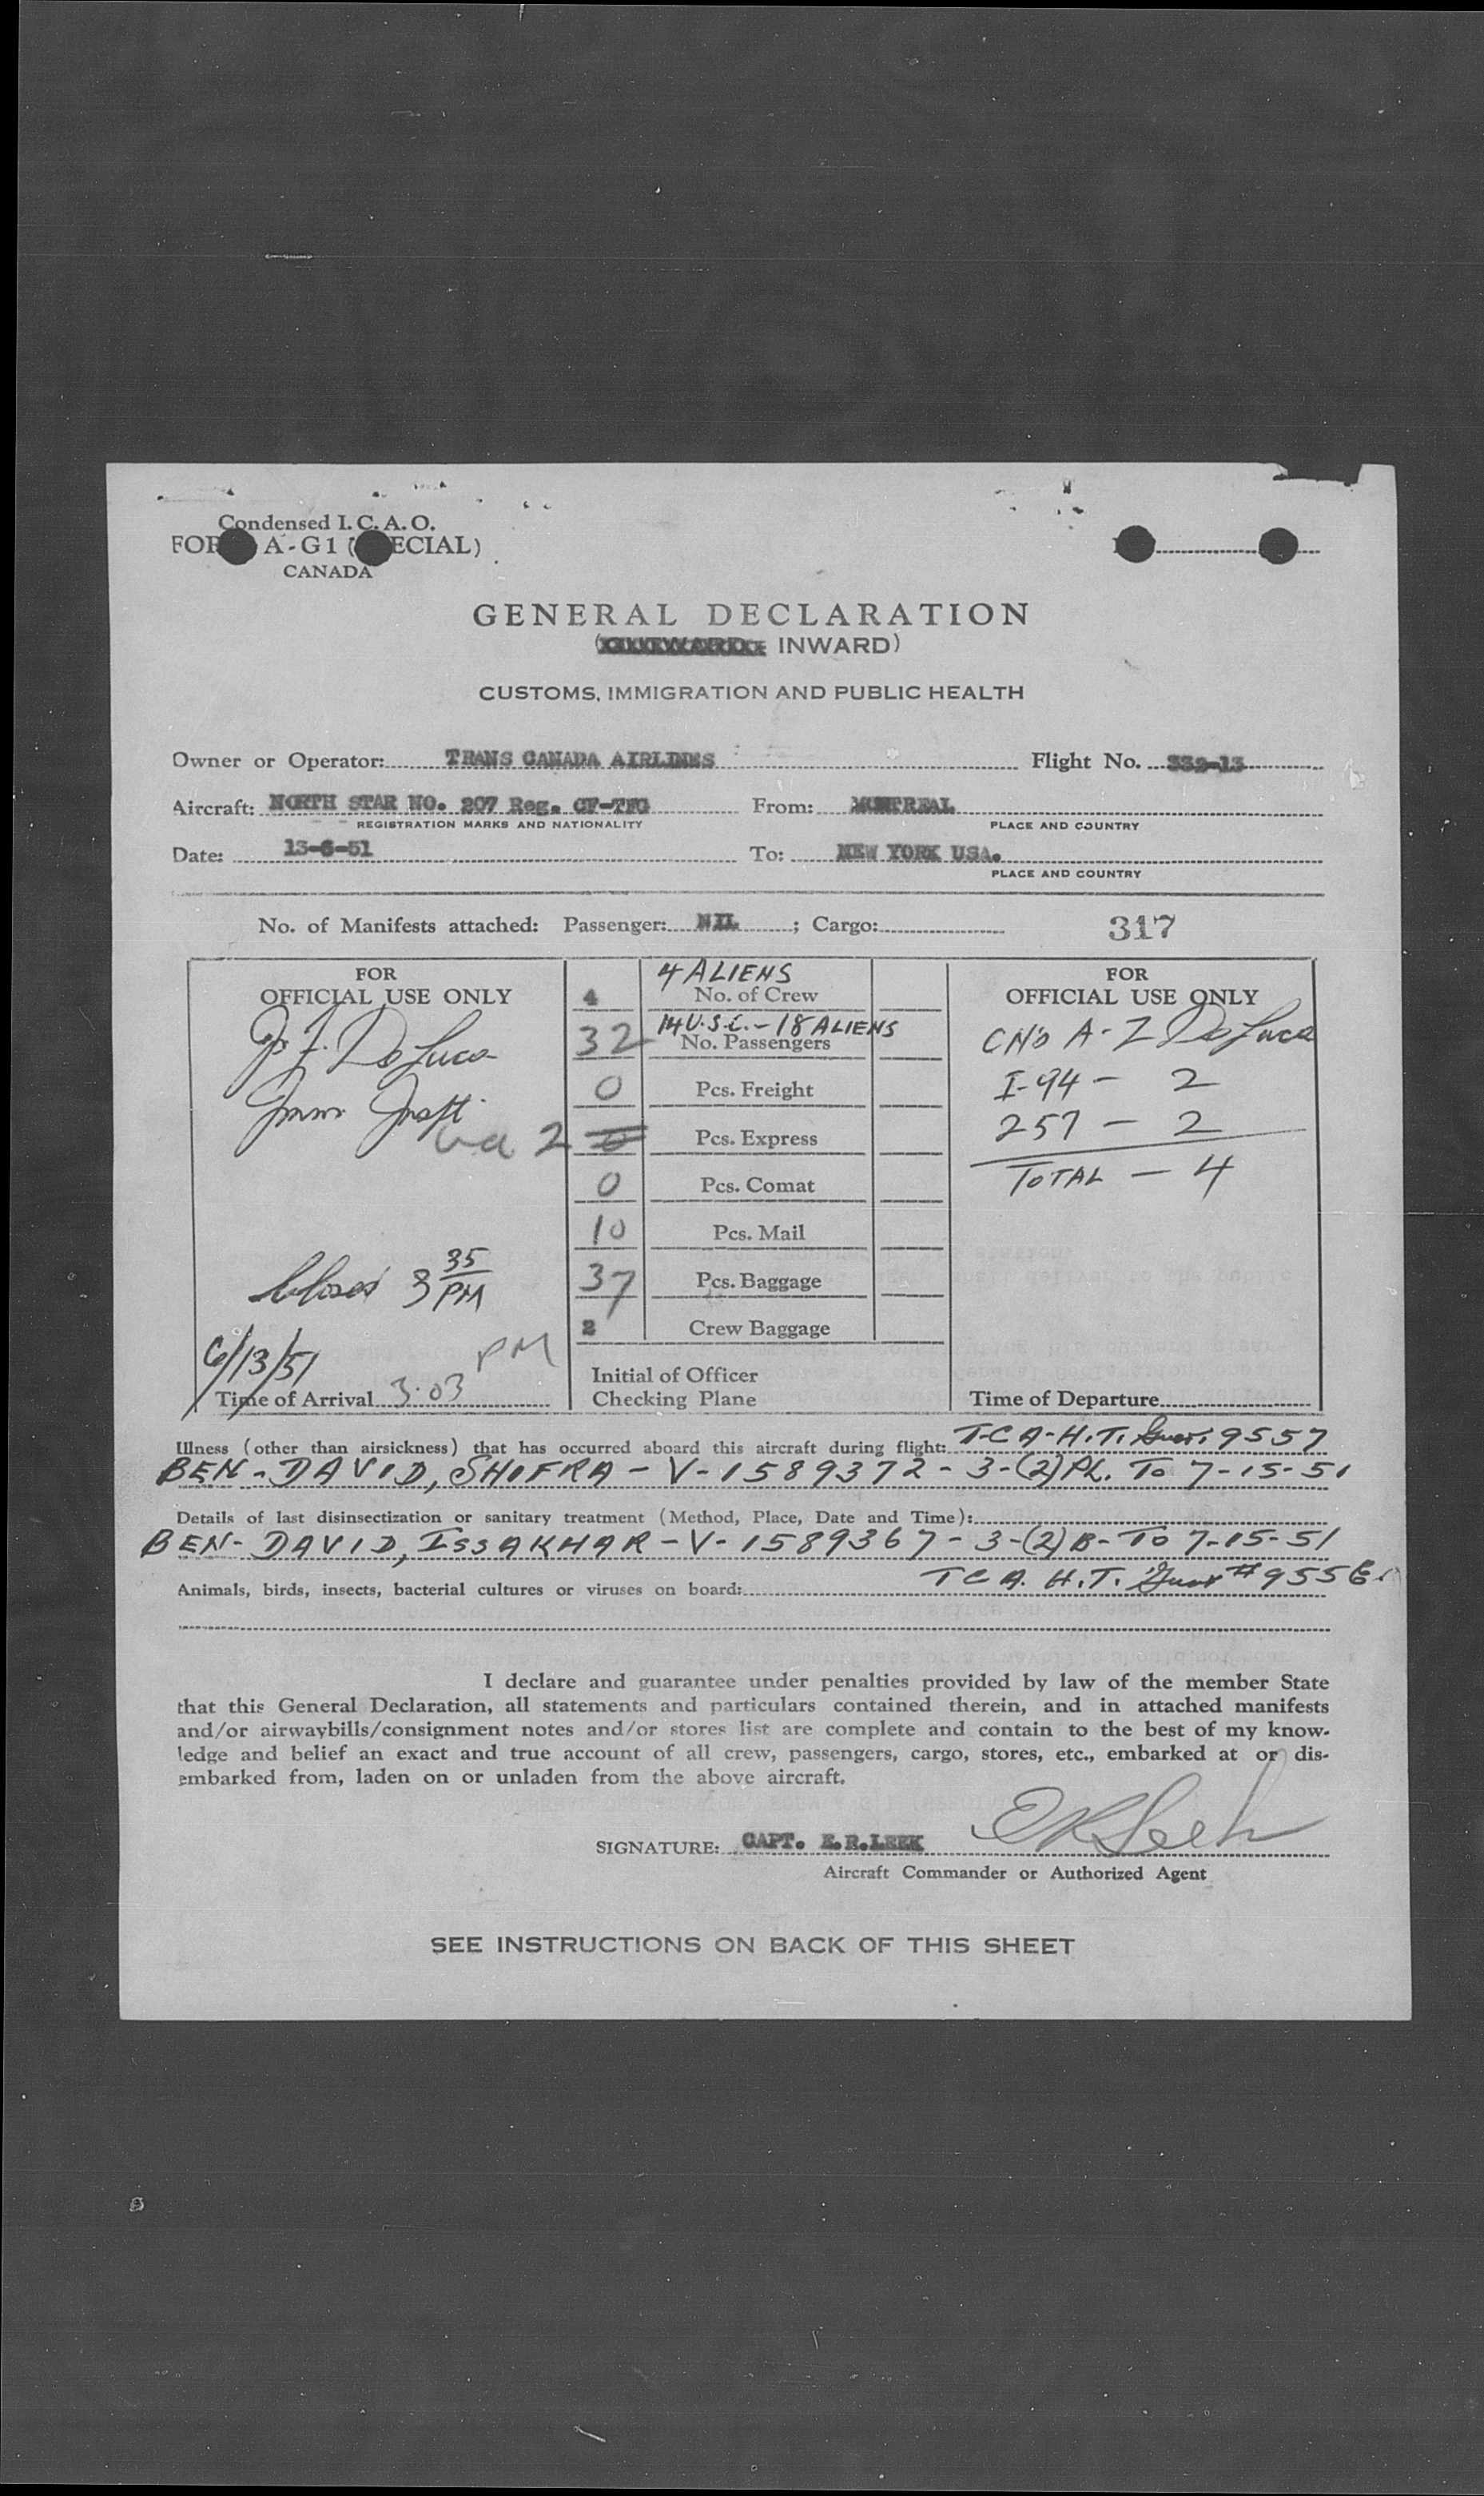 Condensed I. C. A. O.
FOR A-G1 ( ECIAL)
CANADA
GENERAL DECLARATION
( INWARD)
CUSTOMS, IMMIGRATION AND PUBLIC HEALTH
Owner or Operator: TRANS CANADA AIRLINES Flight No.
Aircraft: NORTH STAR NO. 207 Reg. CF-TFG From: MONTREAL
REGISTRATION MARKS AND NATIONALITY PLACE AND COUNTRY
Date: 13-6-51 To: NEW YORK USA.
PLACE AND COUNTRY
No. of Manifests attached: Passenger: NIL ; Cargo: 317
FOR
OFFICIAL USE ONLY
De Luca
Closed 3 35 PM
6/13/51
Time of Arrival 3.03 PM
4 ALIENS
4 No. of Crew
14 U.S.C. - 18 ALIENS
32 No. Passengers
0 Pcs. Freight
2 0 Pcs. Express
0 Pcs. Comat
10 Pcs. Mail
37 Pcs. Baggage
2 Crew Baggage
Initial of Officer
Checking Plane
FOR
OFFICIAL USE ONLY
A-Z De Luca
I-94 - 2
257 - 2
TOTAL - 4
Time of Departure
Illness (other than airsickness) that has occurred aboard this aircraft during flight: T-C A-H.T. 9557
BEN-DAVID, SHIFRA - V-1589372 - 3-(2) PL. To 7-15-51
Details of last disinsectization or sanitary treatment (Method, Place, Date and Time):
BEN-DAVID, ISSAKHAR - V-1589367 - 3-(2) B- To 7-15-51
Animals, birds, insects, bacterial cultures or viruses on board: T C A. H.T. # 9556
I declare and guarantee under penalties provided by law of the member State
that this General Declaration, all statements and particulars contained therein, and in attached manifests
and/or airwaybills/consignment notes and/or stores list are complete and contain to the best of my know-
ledge and belief an exact and true account of all crew, passengers, cargo, stores, etc., embarked at or dis-
embarked from, laden on or unladen from the above aircraft.
SIGNATURE: CAPT. E.R.LEEK ER Leek
Aircraft Commander or Authorized Agent
SEE INSTRUCTIONS ON BACK OF THIS SHEET